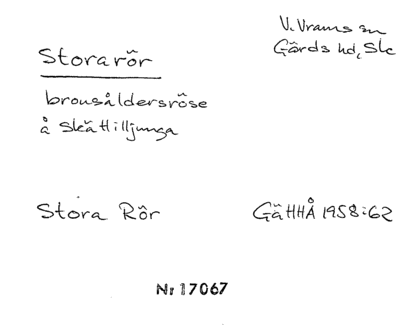 V. Vrams sn
Gärds hd, Sk
Storarör
bronsåldersröse
å Skättilljunga
Stora Rör
GäHHÅ 1958:62
Nr 17067